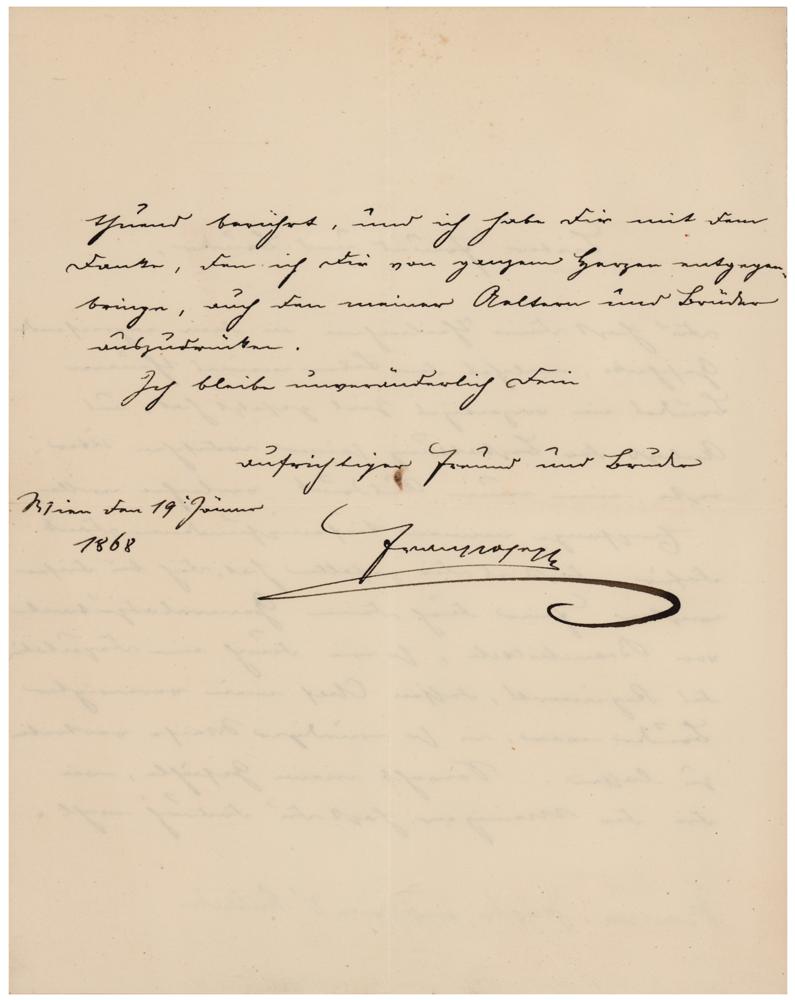 thuend berührt, und ich habe Dir mit dem
Danke, den ich Dir von ganzem Herzen entgegen-
bringe, auch den meiner Aeltern und Brüder
auszudrücken.
Ich bleibe unveränderlich Dein
aufrichtiger Freund und Bruder
Wien den 19. Jänner
1868
Franz Joseph